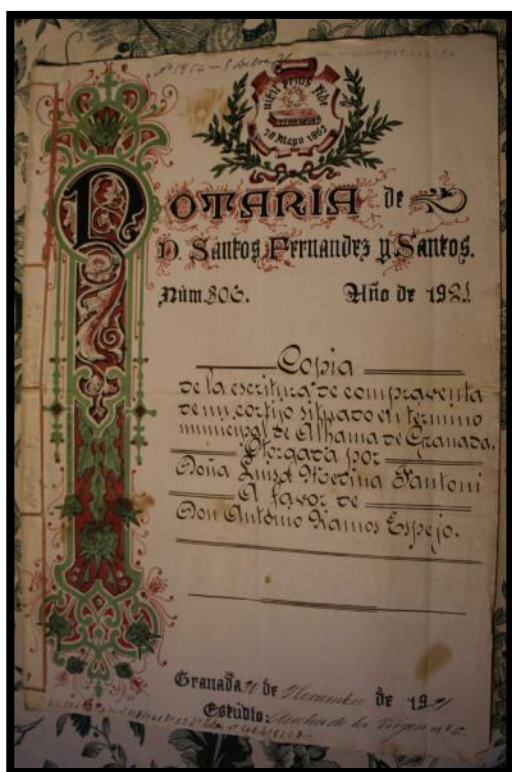 nihil prius fide
28 Mayo 1862
NOTARIA de
D. Santos Fernandez y Santos.
Núm. 306. Año de 1921
Copia
de la escritura de compraventa
de un cortijo situado en término
municipal de Alhama de Granada.
Otorgada por
Doña Luisa Medina Fantoni
A favor de
Don Antonio Ramos Espejo.
Granada 21 de Noviembre de 1921
Estudio: Ancha de la Virgen nº